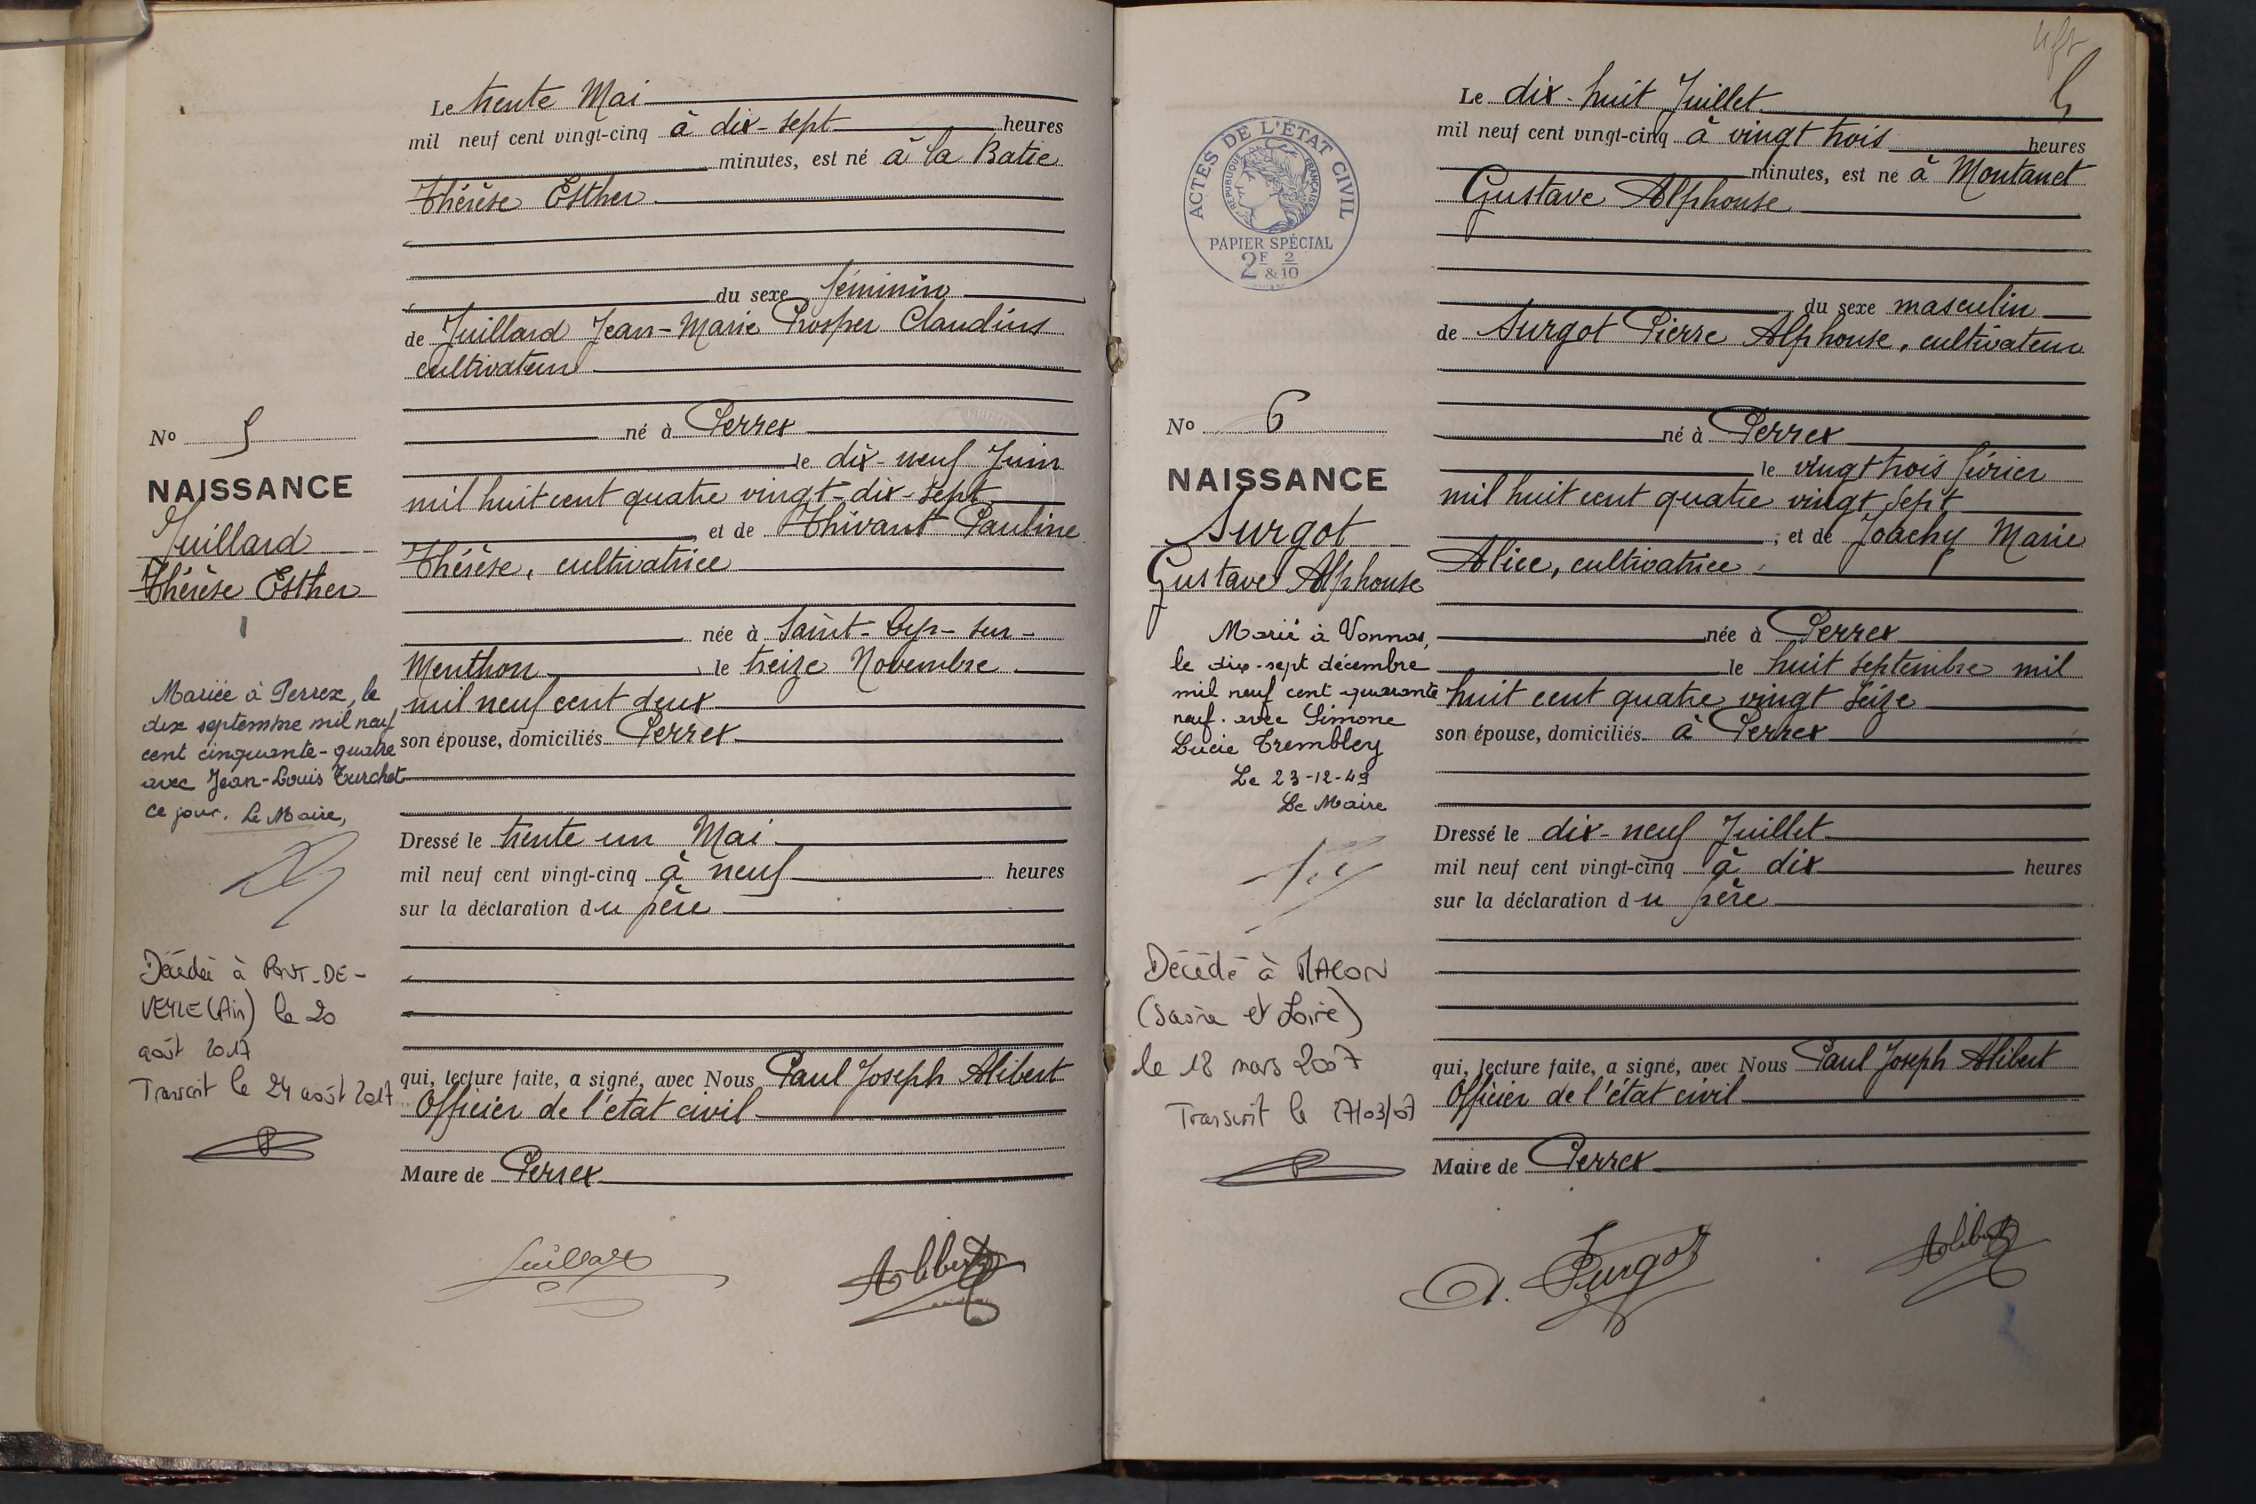 Le trente Mai
mil neuf cent vingt-cinq à dix-sept heures
minutes, est né à la Batie
Thérèse Esther
du sexe féminin
de Juillard Jean-Marie Prosper Claudius
cultivateur
né à Perrex
le dix-neuf Juin
mil huit cent quatre vingt-dix-sept
et de Thivant Pauline
Thérèse, cultivatrice
née à Saint-Cyr-sur-
Menthon, le treize Novembre
mil neuf cent deux
son épouse, domiciliés Perrex
Dressé le trente un Mai
mil neuf cent vingt-cinq à neuf heures
sur la déclaration du père
qui, lecture faite, a signé, avec Nous Paul Joseph Alibert
Officier de l'état civil
Maire de Perrex
Juillard
Alibert
No 5
NAISSANCE
Juillard
Thérèse Esther
1
Mariée à Perrex, le
dix septembre mil neuf
cent cinquante-quatre
avec Jean-Louis Turchet
ce jour. Le Maire,
Décédée à PONT-DE-
VEYLE (Ain) le 20
août 2017
Transcrit le 24 août 2017
5
Le dix-huit Juillet
mil neuf cent vingt-cinq à vingt trois heures
minutes, est né à Montanet
Gustave Alphonse
du sexe masculin
de Surgot Pierre Alphonse, cultivateur
né à Perrex
le vingt trois février
mil huit cent quatre vingt sept
, et de Joachy Marie
Alice, cultivatrice
née à Perrex
le huit septembre mil
huit cent quatre vingt seize
son épouse, domiciliés à Perrex
Dressé le dix-neuf Juillet
mil neuf cent vingt-cinq à dix heures
sur la déclaration du père
qui, lecture faite, a signé, avec Nous Paul Joseph Alibert
Officier de l'état civil
Maire de Perrex
A. Surgot
Alibert
ACTES DE L'ÉTAT CIVIL
RÉPUBLIQUE FRANÇAISE
PAPIER SPÉCIAL
2F 2
&10
No 6
NAISSANCE
Surgot
Gustave Alphonse
Marié à Vonnas,
le dix-sept décembre
mil neuf cent quarante
neuf. avec Simone
Lucie Trembley
Le 23-12-49
Le Maire
Décédé à MACON
(Saône et Loire)
le 18 mars 2007
Transcrit le 27/03/07